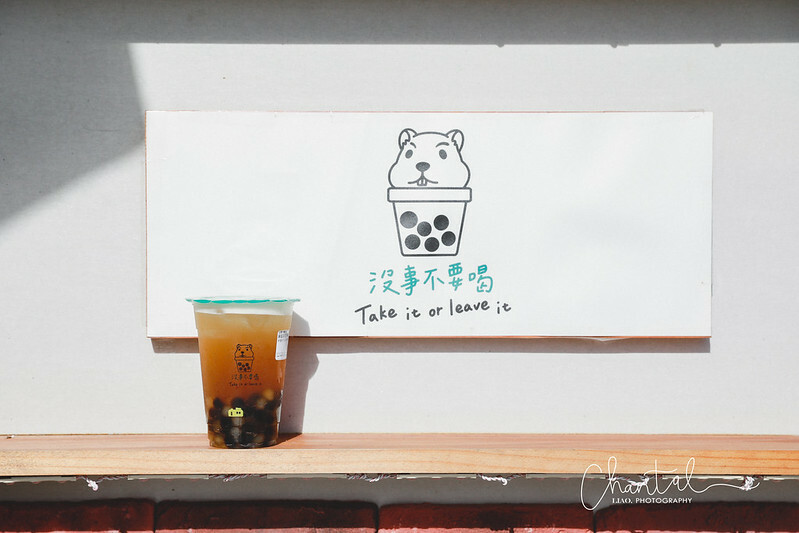 沒事不要喝
Take it or leave it
沒事不要喝
Take it or leave it
Chantal
LIAO. PHOTOGRAPHY